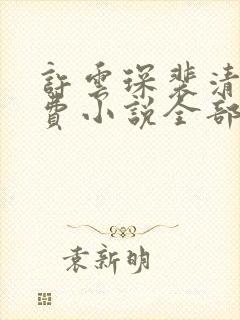 許雲琛裴清
費小說全部
袁新明